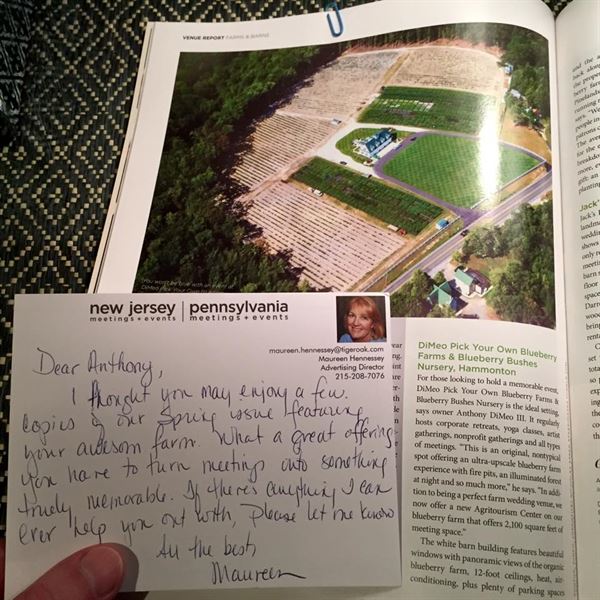 VENUE REPORT FARMS & BARNS
DiMeo Pick Your Own Blueberry
Farms & Blueberry Bushes
Nursery, Hammonton
For those looking to hold a memorable event,
DiMeo Pick Your Own Blueberry Farms &
Blueberry Bushes Nursery is the ideal setting,
says owner Anthony DiMeo III. It regularly
hosts corporate retreats, yoga classes, artist
gatherings, nonprofit gatherings and all types
of meetings. "This is an original, nontypical
spot offering an ultra-upscale blueberry farm
experience with fire pits, an illuminated forest
at night and so much more," he says. "In addi-
tion to being a perfect farm wedding venue, we
now offer a new Agritourism Center on our
blueberry farm that offers 2,100 square feet of
meeting space."
The white barn building features beautiful
windows with panoramic views of the organic
blueberry farm, 12-foot ceilings, heat, air-
conditioning, plus plenty of parking spaces
new jersey | pennsylvania
meetings + events meetings + events
maureen.hennessey@tigeroak.com
Maureen Hennessey
Advertising Director
215-208-7076
Dear Anthony,
I thought you may enjoy a few
copies of our Spring issue featuring
your awesom farm. What a great offering
you have to turn meetings into something
truly memorable. If there's anything I can
ever help you out with, please let me know
All the best,
Maureen